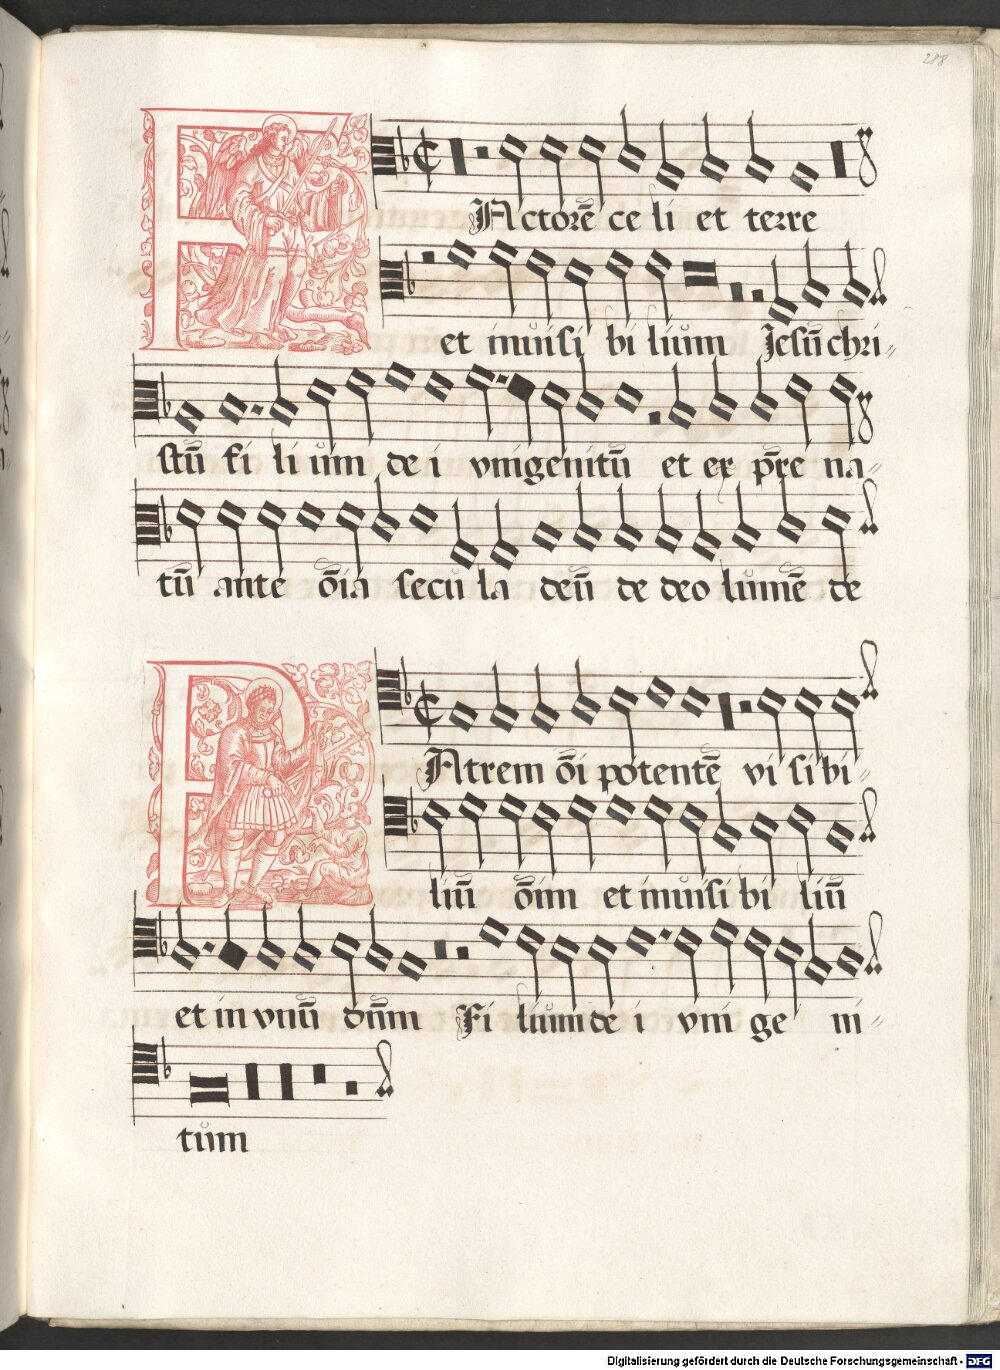 288
FActorē ce li et terre
et inuisi bi lium Jesū chri-
stū fi li um de i vnigenitū et ex p̄re na-
tū ante ōīa secu la deū de deo lumē de
PAtrem ōī potentē vi si bi-
liū ōīm et inuisi bi liū
et in vnū dn̄m Fi lium de i vni ge ni-
tum
Digitalisierung gefördert durch die Deutsche Forschungsgemeinschaft - DFG